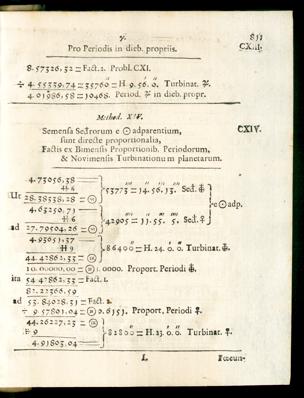 7.
811
Pro Periodis in dieb. propriis.
CXIII.
8.57326,32 = Fact. 2. Probl. CXI.
÷ 4.55339,74 = 35760 = H. 9. 56. 0. Turbinat. ♃.
4.01986,58 = 10468. Period. ♃ in dieb. propr.
Method. XIV.
CXIV.
Semensa Sectorum e ☉ adparentium,
sunt directe proportionalia,
Factis ex Bimensis Proportionib. Periodorum,
& Novimensis Turbinationum planetarum.
4.73056,38
# 6
53773 = 14. 56. 13. Sect.
Ut 28.38338,28 = VI
e ☉ adp.
4.63250,71
# 6
42905 = 11. 55. 5. Sect. ♀
ad 27.79504,26 = VI
4.93651,37
# 9
86400 = H. 24. 0. 0. Turbinat.
44.42862,33 = IX
10.00000,00 = II 1.0000. Proport. Periodi
ita 54.42862,33 = Fact. 1.
82.22366,59
ad 53.84028,31 = Fact. 2.
÷ 9.57801,04 = II 0.6151. Proport. Periodi ♀.
44.26227,23 = IX
÷ 9
82800 = H. 23. 0. 0. Turbinat. ♀.
4.91803,04
L
Fœcun-